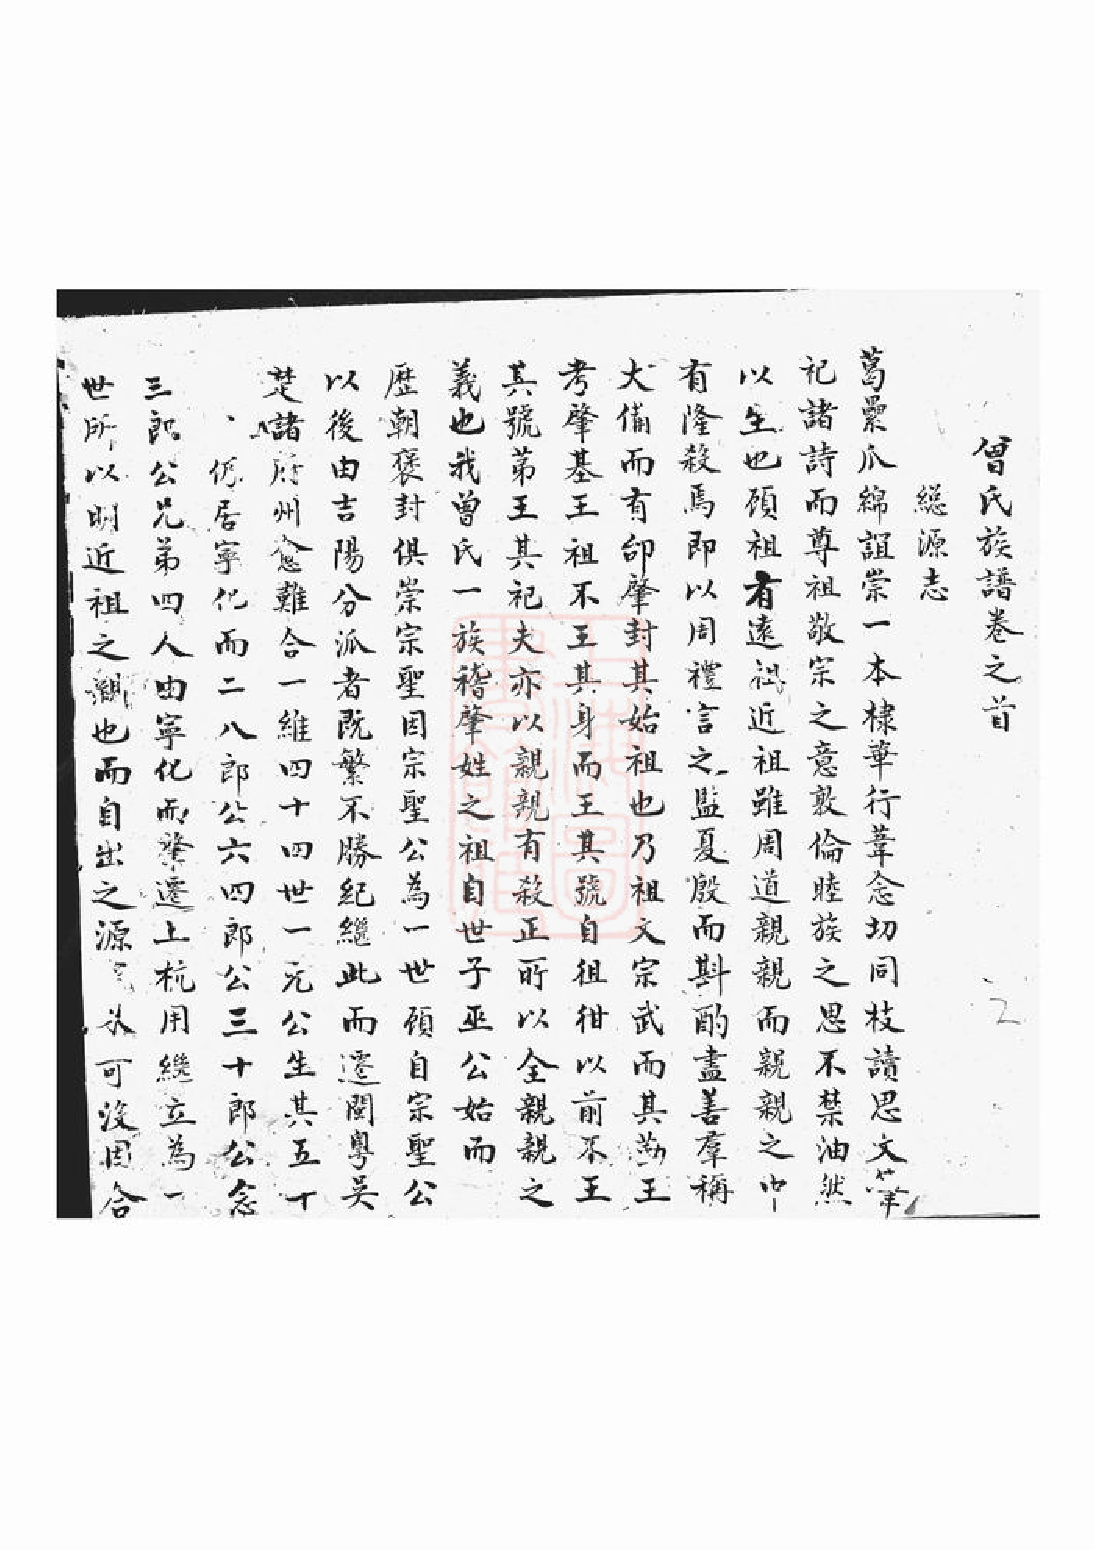 曾氏族譜卷之首
總源志
葛纍爪綿誼崇一本棣華行葦念切同枝讀思文
祀諸詩而尊祖敬宗之意敦倫睦族之思不禁油然
以生也顧祖有遠祖近祖雖周道親親而親親之中
有隆殺焉即以周禮言之監夏殷而斟酌盡善羣稱
大備而有邰肇封其始祖也乃祖文宗武而其王
考肇基王祖不王其身而王其號自徂紺以前不王
其號第王其祀夫亦以親親有殺正所以全親親之
義也我曾氏一族稽肇姓之祖自世子巫公始而
歷朝褒封俱崇宗聖因宗聖公為一世顧自宗聖公
以後由吉陽分派者既繁不勝紀繼此而遷閩粵吳
楚諸府州愈難合一維四十四世一元公生其五十
居寧化而二八郎公六四郎公三十郎公念
三郎公兄弟四人由寧化而肇遷上杭用繼立為一
世所以明近祖之也而自出之源可沒因合